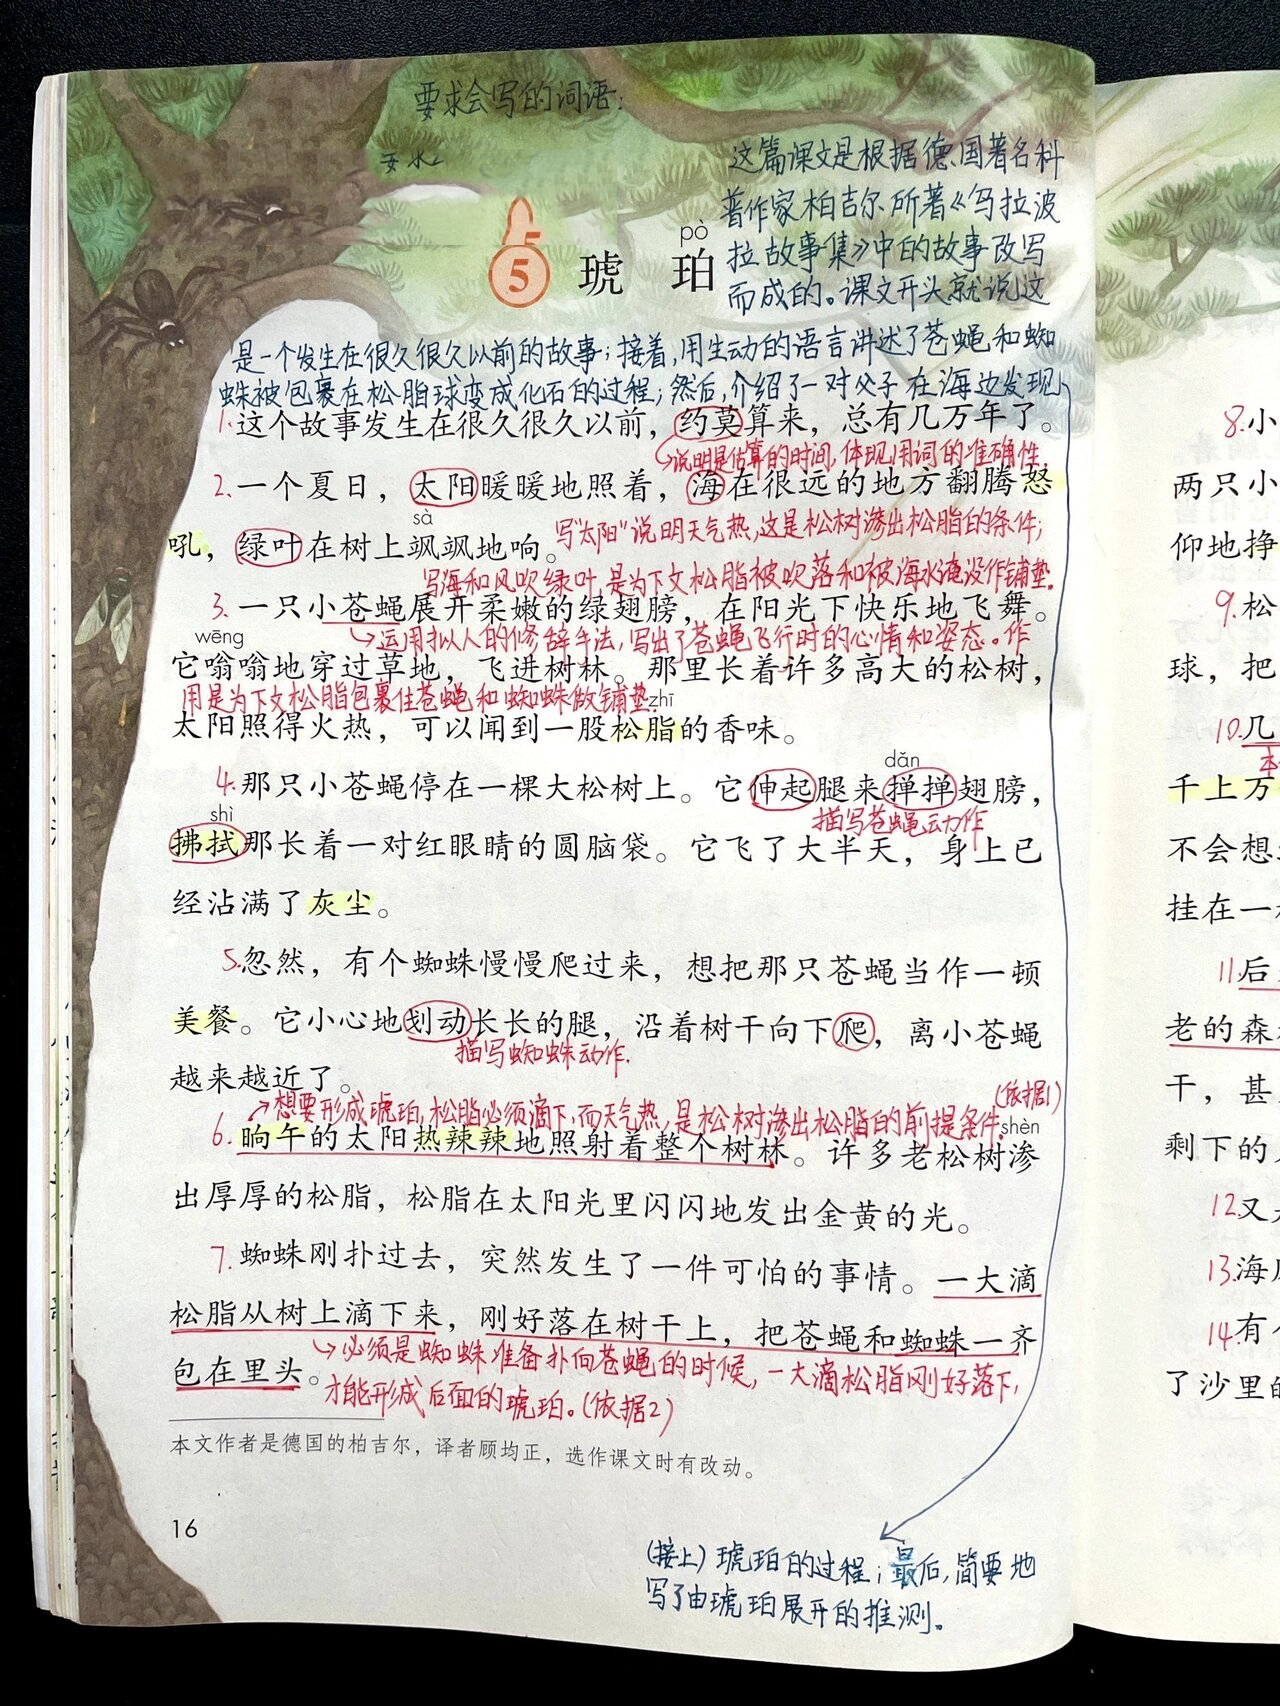 要求会写的词语:
这篇课文是根据德国著名科
普作家柏吉尔所著《乌拉波
拉故事集》中的故事改写
而成的。课文开头就说这
pò
5 琥珀
是一个发生在很久很久以前的故事;接着,用生动的语言讲述了苍蝇和蜘
蛛被包裹在松脂球变成化石的过程;然后,介绍了一对父子在海边发现
1.这个故事发生在很久很久以前,约莫算来,总有几万年了。
说明是估算的时间,体现用词的准确性。
2.一个夏日,太阳暖暖地照着,海在很远的地方翻腾怒
sà
吼,绿叶在树上飒飒地响。
写"太阳"说明天气热,这是松树渗出松脂的条件;
写海和风吹绿叶,是为下文松脂被吹落和被海水淹没作铺垫。
3.一只小苍蝇展开柔嫩的绿翅膀,在阳光下快乐地飞舞。
运用拟人的修辞手法,写出了苍蝇飞行时的心情和姿态。作
wēng
它嗡嗡地穿过草地,飞进树林。那里长着许多高大的松树,
用是为下文松脂包裹住苍蝇和蜘蛛做铺垫
zhī
太阳照得火热,可以闻到一股松脂的香味。
dǎn
4.那只小苍蝇停在一棵大松树上。它伸起腿来掸掸翅膀,
描写苍蝇动作
shì
拂拭那长着一对红眼睛的圆脑袋。它飞了大半天,身上已
经沾满了灰尘。
5.忽然,有个蜘蛛慢慢爬过来,想把那只苍蝇当作一顿
美餐。它小心地划动长长的腿,沿着树干向下爬,离小苍蝇
描写蜘蛛动作.
越来越近了。
想要形成琥珀,松脂必须滴下,而天气热,是松树渗出松脂的前提条件。(依据1)
shèn
6.晌午的太阳热辣辣地照射着整个树林。许多老松树渗
出厚厚的松脂,松脂在太阳光里闪闪地发出金黄的光。
7.蜘蛛刚扑过去,突然发生了一件可怕的事情。一大滴
松脂从树上滴下来,刚好落在树干上,把苍蝇和蜘蛛一齐
包在里头。
必须是蜘蛛准备扑向苍蝇的时候,一大滴松脂刚好落下,
才能形成后面的琥珀。(依据2)
本文作者是德国的柏吉尔,译者顾均正,选作课文时有改动。
16
(接上)琥珀的过程;最后,简要地
写了由琥珀展开的推测。
8.小
两只小
仰地挣
9.松
球,把
10.几
千上万
不会想
挂在一
11.后
老的森
干,甚
剩下的
12.又
13.海
14.有
了沙里的